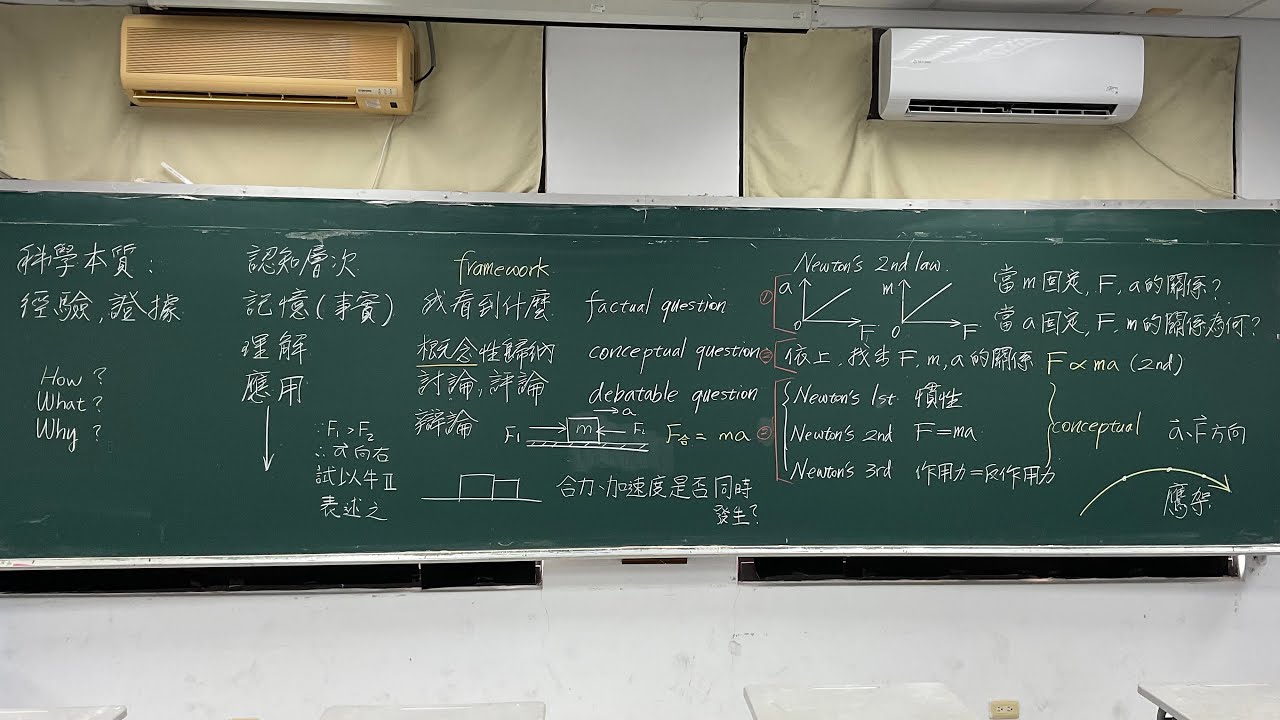 科學本質：
經驗，證據
How ?
What ?
Why ?
認知層次
記憶(事實)
理解
應用
∵F₁ > F₂
∴a⃗ 向右
試以牛Ⅱ
表述之
framework
我看到什麼
概念性歸納
討論，評論
辯論
factual question
conceptual question
debatable question
a
F₁ m F₂
F合 = ma
合力、加速度是否同時
發生？
Newton's 2nd law.
①
a
0 F
m
0 F
當m固定，F, a的關係？
當a固定，F, m的關係為何？
依上，找出F, m, a的關係 F ∝ ma (2nd)
Newton's 1st 慣性
Newton's 2nd F=ma
Newton's 3rd 作用力=反作用力
conceptual
a⃗、F⃗方向
鷹架